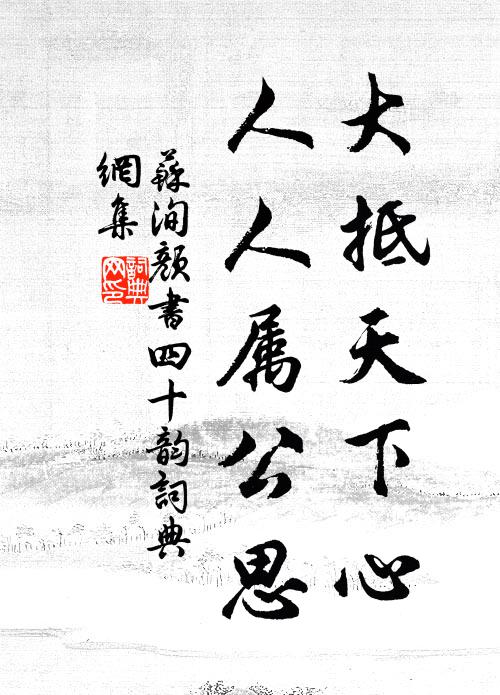 大抵天下心
人人属公思
蘇洵顏書四十韵詞典
網集
詞典
网印